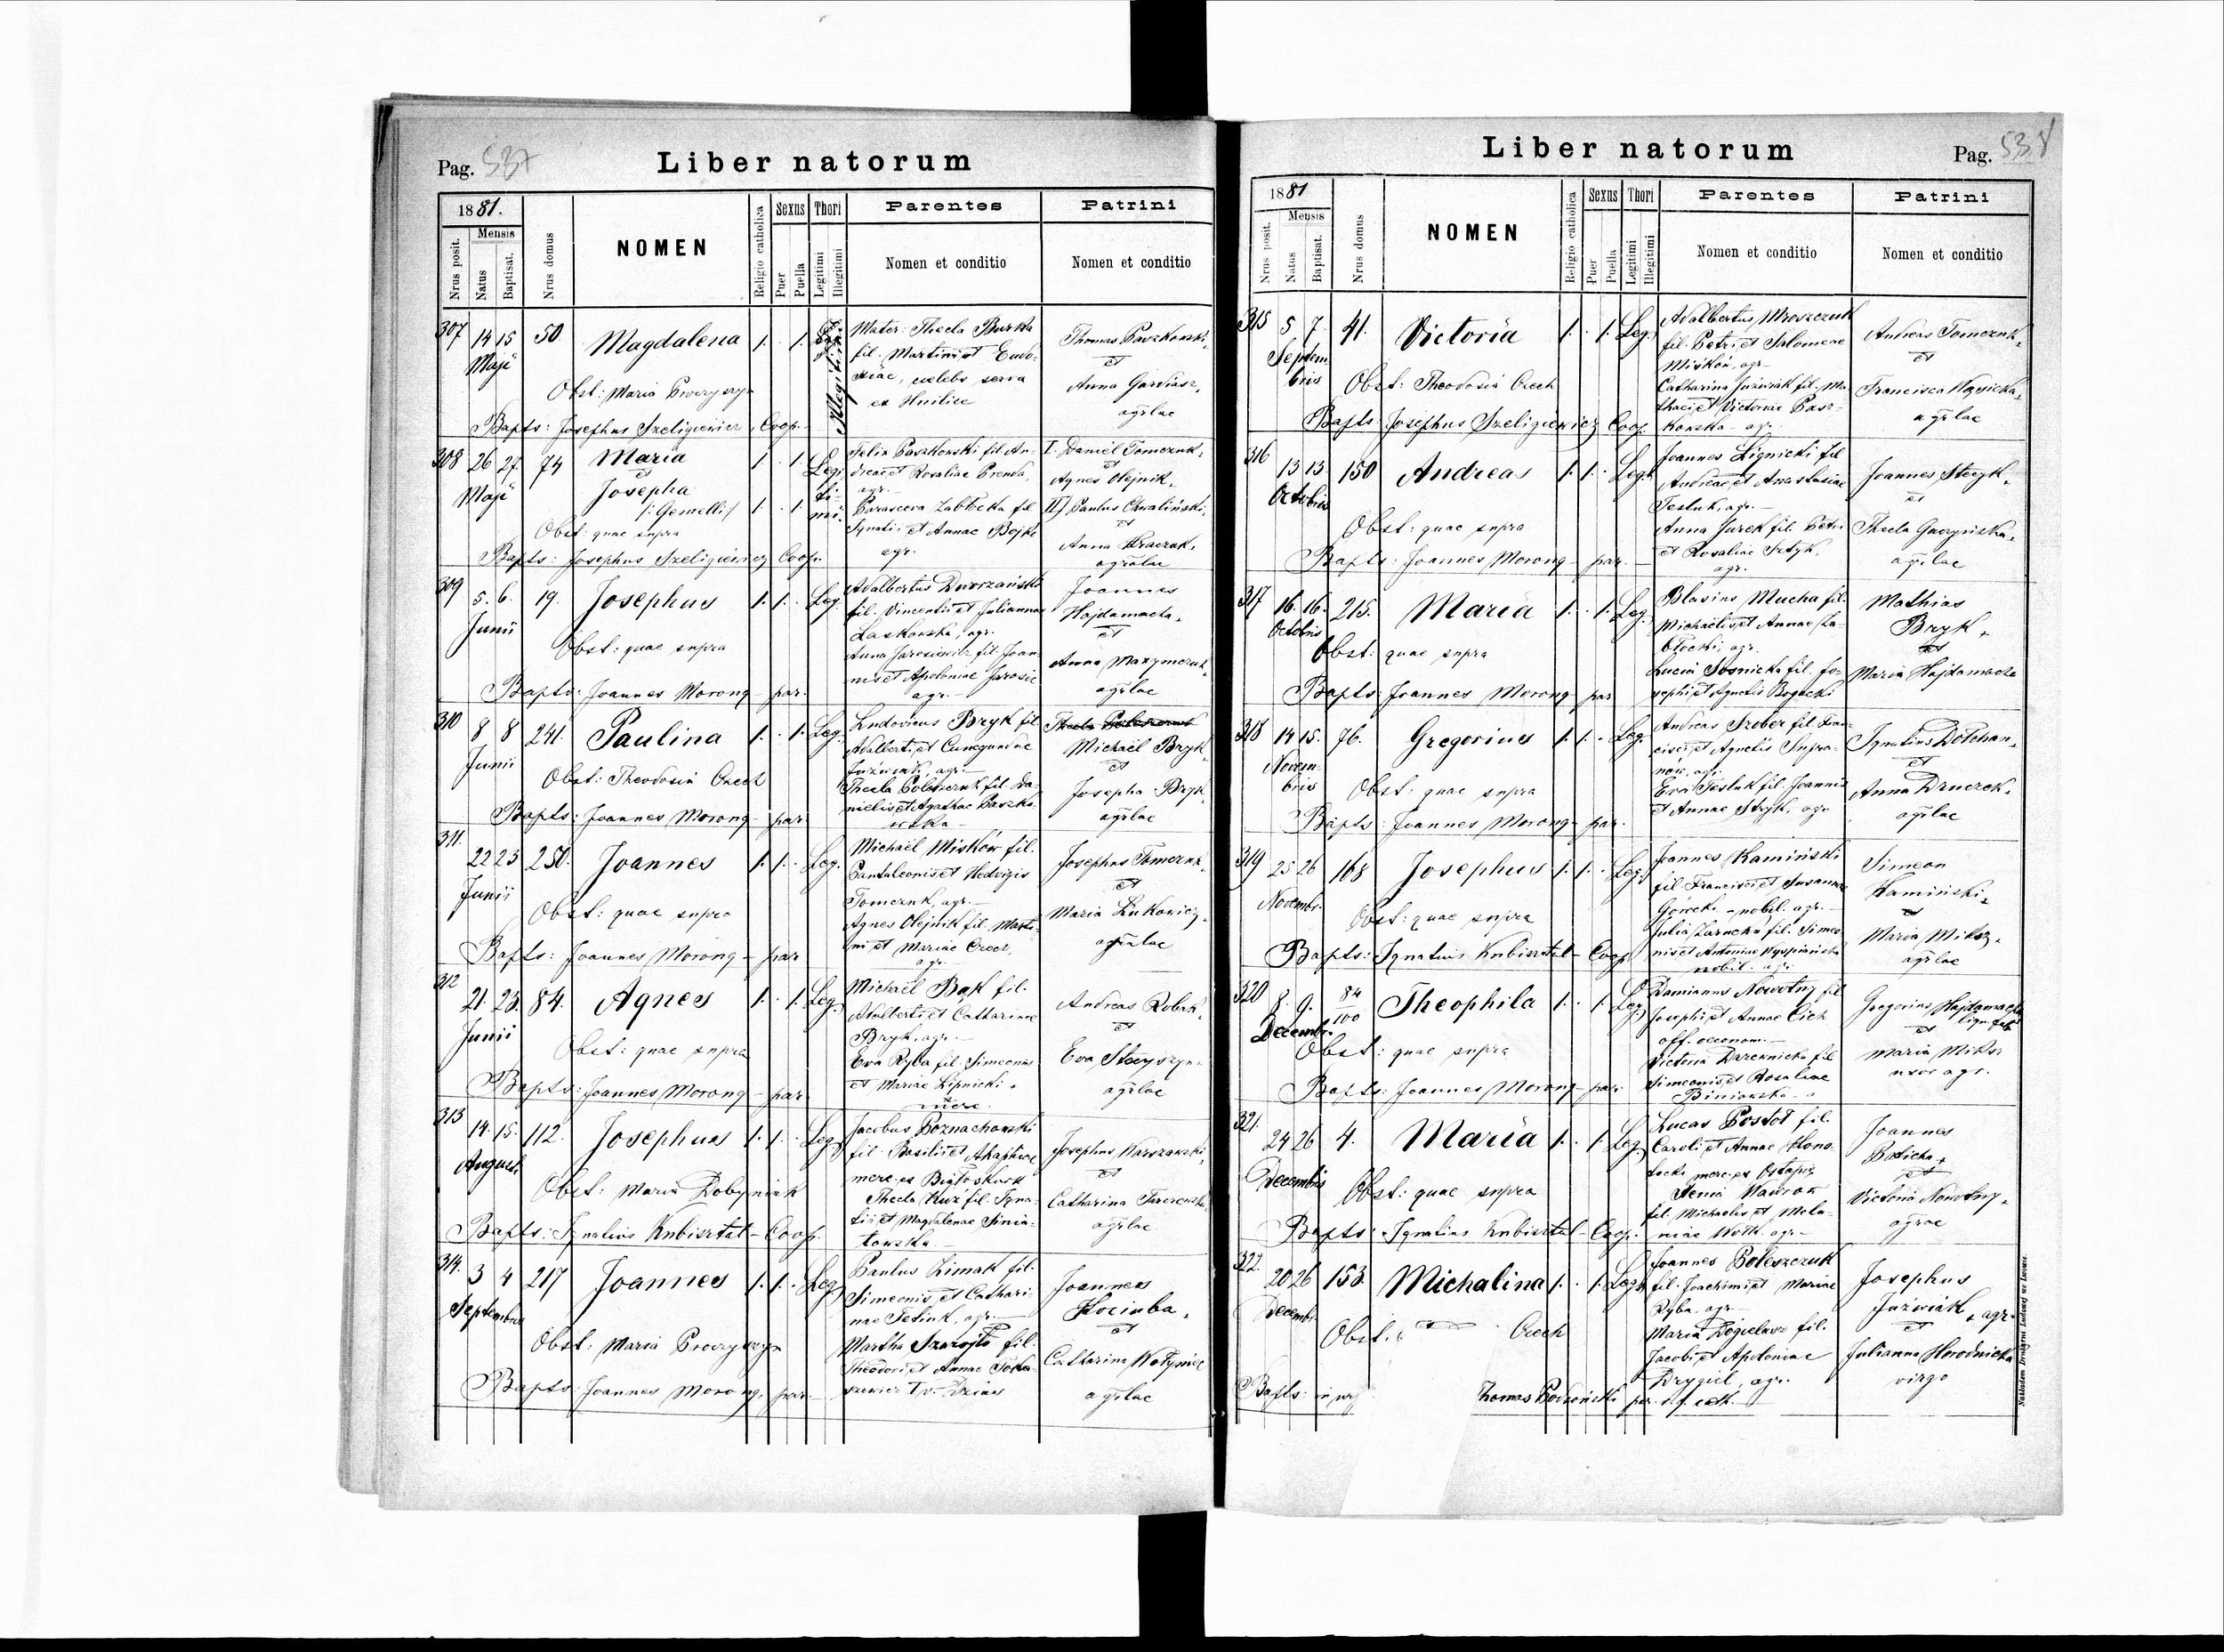 Pag. 537
Liber natorum
1881.
Mensis
Nrus posit.
Natus
Baptisat.
Nrus domus
NOMEN
Religio catholica
Sexus
Puer
Puella
Thori
Legitimi
Illegitimi
Parentes
Nomen et conditio
Patrini
Nomen et conditio
307 14 15 50 Magdalena 1. . 1.
Maji
Obst: Maria
Bapts: Josephus Szeligiewicz Coop.
Illegitimi
Mater: Thecla Burka
fil. Martini et Eudo-
xiae, celebs serva
ex Hnilice
Thomas Paszkowski,
et
Anna Gardiasz,
agrlae
308 26 27 74 Maria 1 . 1
Maji
et
Josepha
/:Gemelli:/ 1 . 1.
Obst: quae supra
Bapts: Josephus Szeligiewicz Coop.
Legi-
ti-
mi.
Felix Paszkowski fil. An-
dreae et Rosaliae Prenda,
agr.
Parasceva Zabłocka fil
Ignatii et Annae Bojko
agr.
I. Daniel Tomczuk,
et
Agnes Olejnik,
II) Paulus Chwaliński,
et
Anna
agrolae
309 5. 6. 19. Josephus 1. 1. . Leg.
Junii
Obst: quae supra
Bapts: Joannes Morong par.
Adalbertus Dworzański
fil. Vincentii et Juliannae
Laskowska, agr.
Anna Jarosiewicz fil. Joan-
nis et Apoloniae
agr.
Joannes
Hajdamacha,
et
Anna Maxymczuk,
agrlae
310 8 8 241. Paulina 1. . 1. Leg.
Junii
Obst: Theodosia Czech
Bapts: Joannes Morong par.
Ludovicus Bryk fil
Adalberti et Cunegundae
Juźwiak, agr.
Thecla Poleszczuk fil. Da-
nielis et Agathae Paszko-
wska
Michaël Bryk,
et
Josepha Bryk,
agrlae
311. 22 23 250. Joannes 1. 1. . Leg.
Junii
Obst: quae supra
Bapts: Joannes Morong par
Michaël Miśków fil.
Pantaleonis et Hedvigis
Tomczuk, agr.
Agnes Olejnik fil. Marti-
ni et Mariae Czech,
agr.
Josephus Tomczuk,
et
Maria Łukowicz,
agrlae
312 21. 23. 84. Agnes 1. . 1. Leg.
Junii
Obst: quae supra
Bapts: Joannes Morong par
Michaël Bąk fil.
Adalberti et Catharinae
Bryk, agr.
Eva Ryba fil. Simeonis
et Mariae Lipnicki,
merc.
Andreas Robak,
et
Eva
agrlae
313 14. 15. 112. Josephus 1. 1. . Leg
Augusti
Obst: Maria Dobyniak
Bapts: Ignatius Kubisztal Coop.
Jacobus Poznachowski
fil. Basilii et
merc. ex
Thecla fil. Igna-
tii et Magdalenae Sinia-
towska
Josephus Warszawski,
et
Catharina
agrlae
314. 3 4 217 Joannes 1. 1. . Leg
Septembris
Obst: Maria
Bapts: Joannes Morong, par
Paulus Zimak fil.
Simeonis et Cathari-
nae agr.
Martha fil.
Theodori et Annae
Joannes
Kociuba,
et
Catharina Wołyniec
agrlae
Liber natorum
Pag. 538
1881
Mensis
Nrus posit.
Natus
Baptisat.
Nrus domus
NOMEN
Religio catholica
Sexus
Puer
Puella
Thori
Legitimi
Illegitimi
Parentes
Nomen et conditio
Patrini
Nomen et conditio
315 5 7. 41. Victoria 1. . 1. Leg.
Septem-
bris
Obst: Theodosia Czech
Bapts: Josephus Szeligiewicz Coop
Adalbertus Mroszczuk
fil. Petri et Salomeae
Miśków, agr.
Catharina Juźwiak fil. Ma-
thaei et Victoriae Pasz-
kowska agr.
Andreas Tomczuk,
et
Francisca
agrlae
316 13 13 150 Andreas 1. 1. . Leg.
Octobris
Obst: quae supra
Bapts: Joannes Morong par.
Joannes Lignicki fil
Andreae et Anastasiae
Tesluk, agr.
Anna Jurek fil. Petri
et Rosaliae
agr.
Joannes
et
Thecla
agrlae
317 16. 16. 215. Maria 1. . 1. Leg.
Octobris
Obst: quae supra
Bapts: Joannes Morong par
Blasius Mucha fil.
Michaëlis et Annae Za-
błocki, agr.
Lucia Sosnicka fil. Jo-
sephi et Agnetis Bogucki
Mathias
Bryk,
et
Maria Hajdamacha
318 14 15. 76. Gregorius 1. 1. . Leg.
Novem-
bris
Obst: quae supra
Bapts: Joannes Morong par.
Andreas Szober fil. Fran-
cisci et Agnetis Supra-
now, agr.
Eva Tesluk fil. Joannis
et Annae Stryk, agr
Ignatius Dołchan,
et
Anna
agrlae
319 25 26 168 Josephus 1. 1. . Leg.
Novembr.
Obst: quae supra
Bapts: Ignatius Kubisztal Coop
Joannes Kamiński
fil. Francisci et Susannae
Górecki nobil. agr.
Julia Zarucka fil. Simeo-
nis et Antoninae Wyspiańska
nobil. agr.
Simeon
Kamiński,
et
Maria Miksz,
agrlae
320 8. 9. 84/100 Theophila 1. . 1. Leg.
Decembr.
Obst: quae supra
Bapts: Joannes Morong par.
Damianus Nowotny fil
Josephi et Annae Cich
off. oeconom.
Victoria fil
Simeonis et Rosaliae
Biniowska
Gregorius Hajdamacha
et
Maria Miksz
uxor agr.
321. 24 26 4. Maria 1. . 1. Leg.
Decembris
Obst: quae supra
Bapts: Ignatius Kubisztal Coop.
Lucas Postoł fil.
Caroli et Annae Hono-
locki merc. ex Ostapie
Xenia Wawrow
fil. Michaelis et Mela-
niae agr.
Joannes
et
Victoria Nowotny,
agrae
322. 20 26 153. Michalina 1. . 1. Leg.
Decembr.
Obst: Czech
Bapts: Thomas par.
Joannes Poleszczuk
fil. Joachimi et Mariae
Ryba, agr.
Maria fil.
Jacobi et Apoloniae
Drygiel, agr.
Josephus
Juźwiak, agr.
et
Julianna Horodnicka
virgo
Nakładem Drukarni Ludowej we Lwowie.